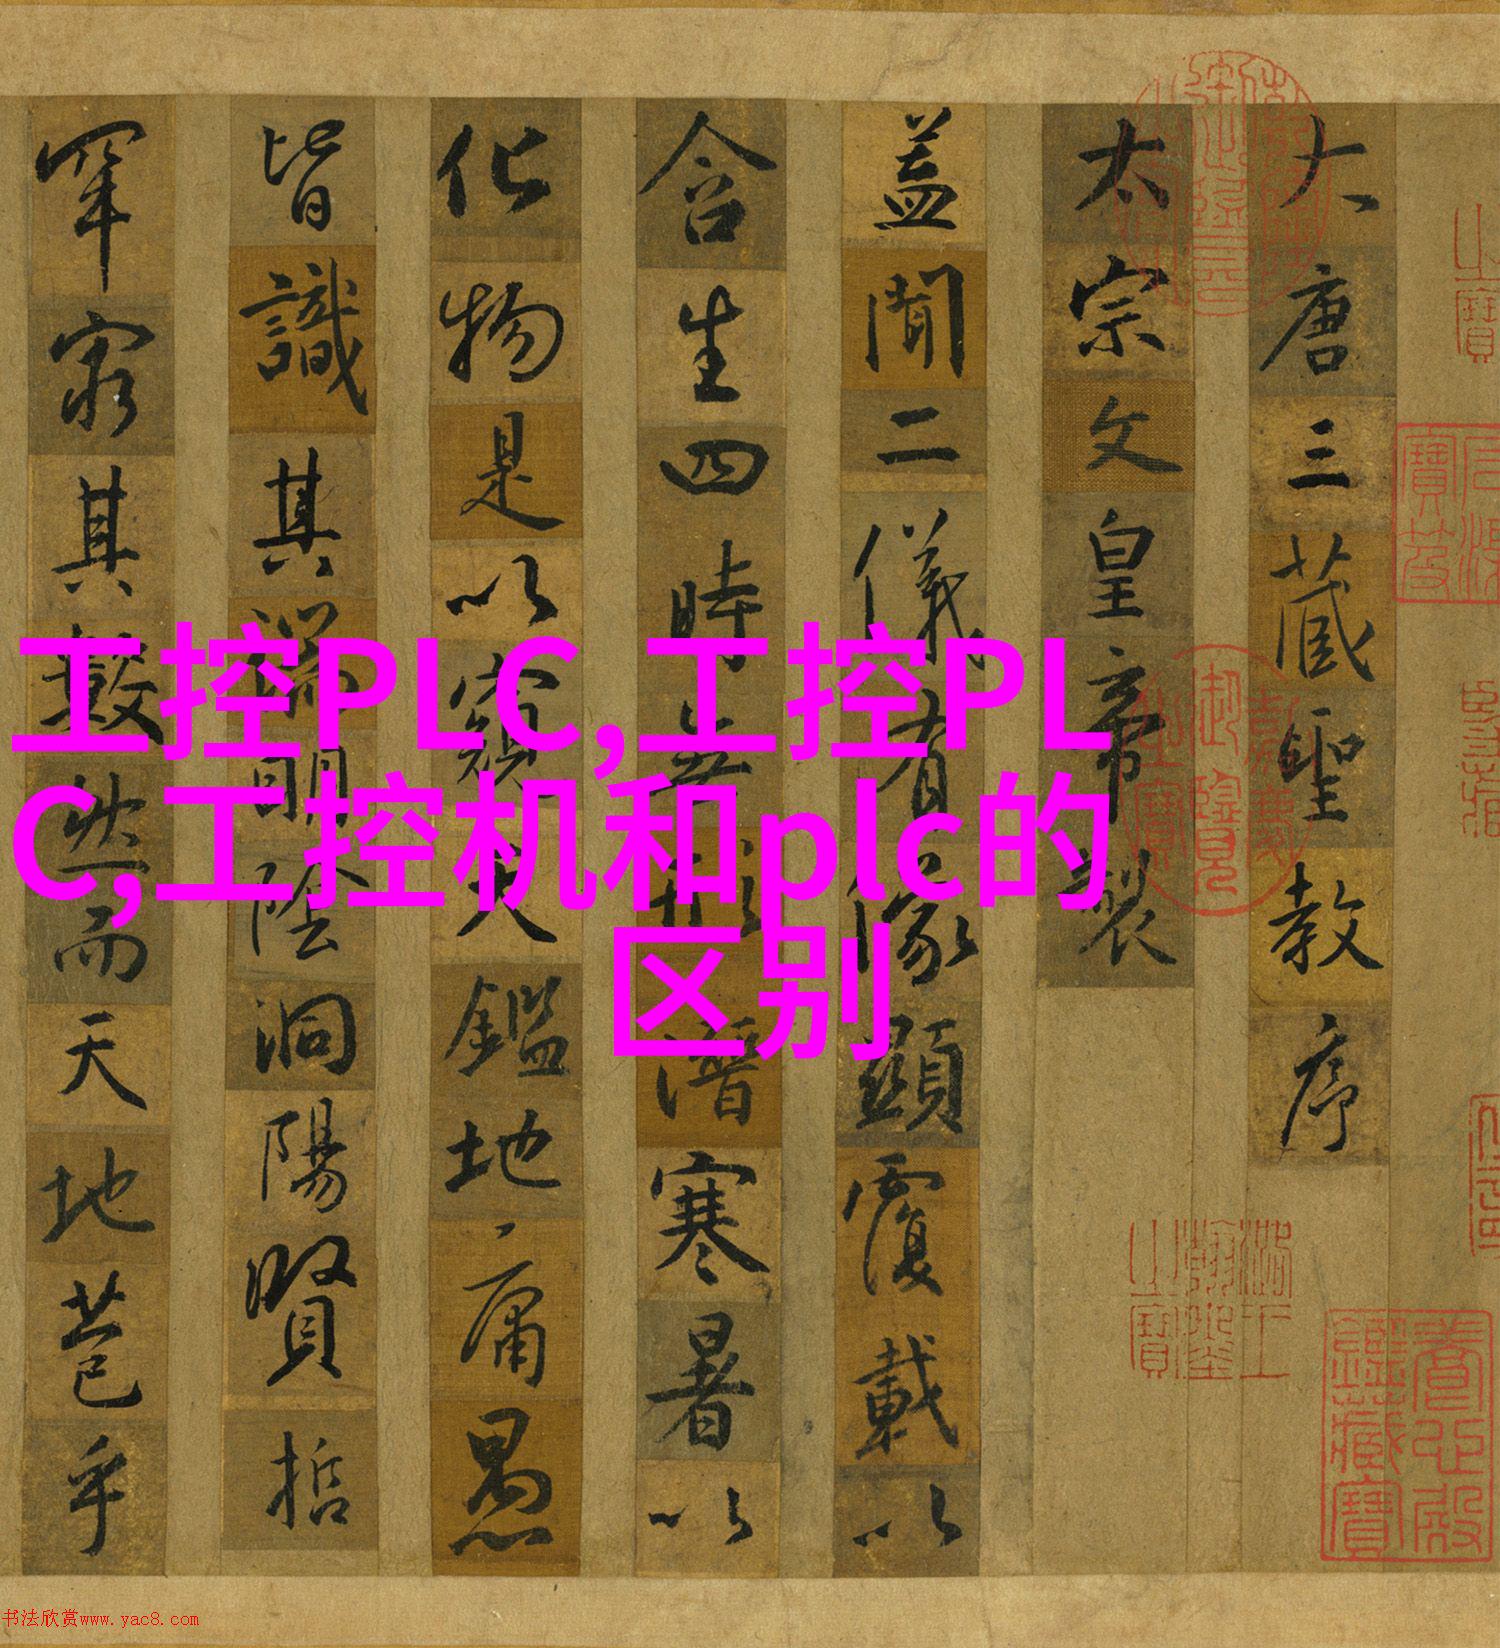 工控PLC,工控PL
C,工控机和plc的
区别
大唐三藏聖教序
太宗文皇帝製
盖聞二儀有像顯覆載以
含生四時無形潛寒暑以
化物是以窺天鑑地庸愚
皆識其端明陰洞陽賢哲
罕窮其數然而天地苞乎
书法欣赏www.yac8.com